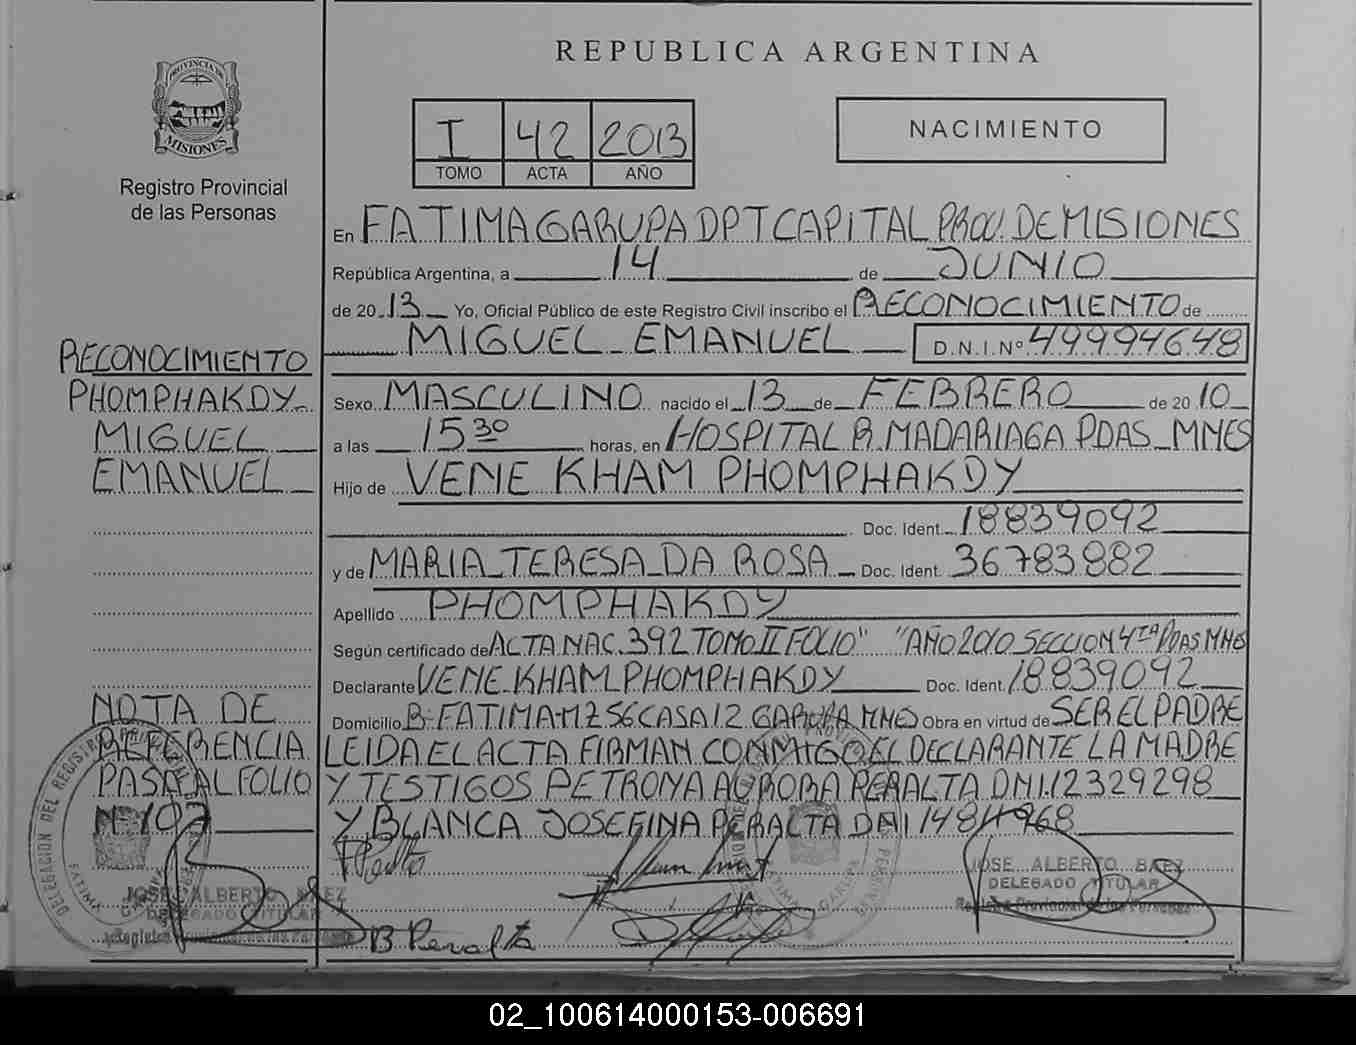 REPUBLICA ARGENTINA
PROVINCIA DE
MISIONES
Registro Provincial
de las Personas
I 42 2013
TOMO ACTA AÑO
NACIMIENTO
En FATIMA GARUPA DPT CAPITAL PROV. DE MISIONES
República Argentina, a 14 de JUNIO
de 2013 Yo, Oficial Público de este Registro Civil inscribo el RECONOCIMIENTO de
MIGUEL EMANUEL D.N.I.Nº 49994648
Sexo MASCULINO nacido el 13 de FEBRERO de 2010
a las 15 30 horas, en HOSPITAL R. MADARIAGA PDAS MNES
Hijo de VENE KHAM PHOMPHAKDY
Doc. Ident. 18839092
y de MARIA TERESA DA ROSA Doc. Ident. 36783882
Apellido PHOMPHAKDY
Según certificado de ACTA NAC. 392 TOMO II FOLIO " " AÑO 2010 SECCION 4TA PDAS MNES
Declarante VENE KHAM PHOMPHAKDY Doc. Ident. 18839092
Domicilio Bº FATIMA MZ 56 CASA 12 GARUPA MNES Obra en virtud de SER EL PADRE
LEIDA EL ACTA FIRMAN CONMIGO EL DECLARANTE LA MADRE
Y TESTIGOS PETRONA AURORA PERALTA DNI 12329298
Y BLANCA JOSEFINA PERALTA DNI
RECONOCIMIENTO
PHOMPHAKDY
MIGUEL
EMANUEL
NOTA DE
REFERENCIA
PASA AL FOLIO
Nº 107
JOSE ALBERTO BAEZ
DELEGADO TITULAR
Registro Provincial de las Personas
B Peralta
JOSE ALBERTO BAEZ
DELEGADO TITULAR
Registro Provincial de las Personas
02_100614000153-006691